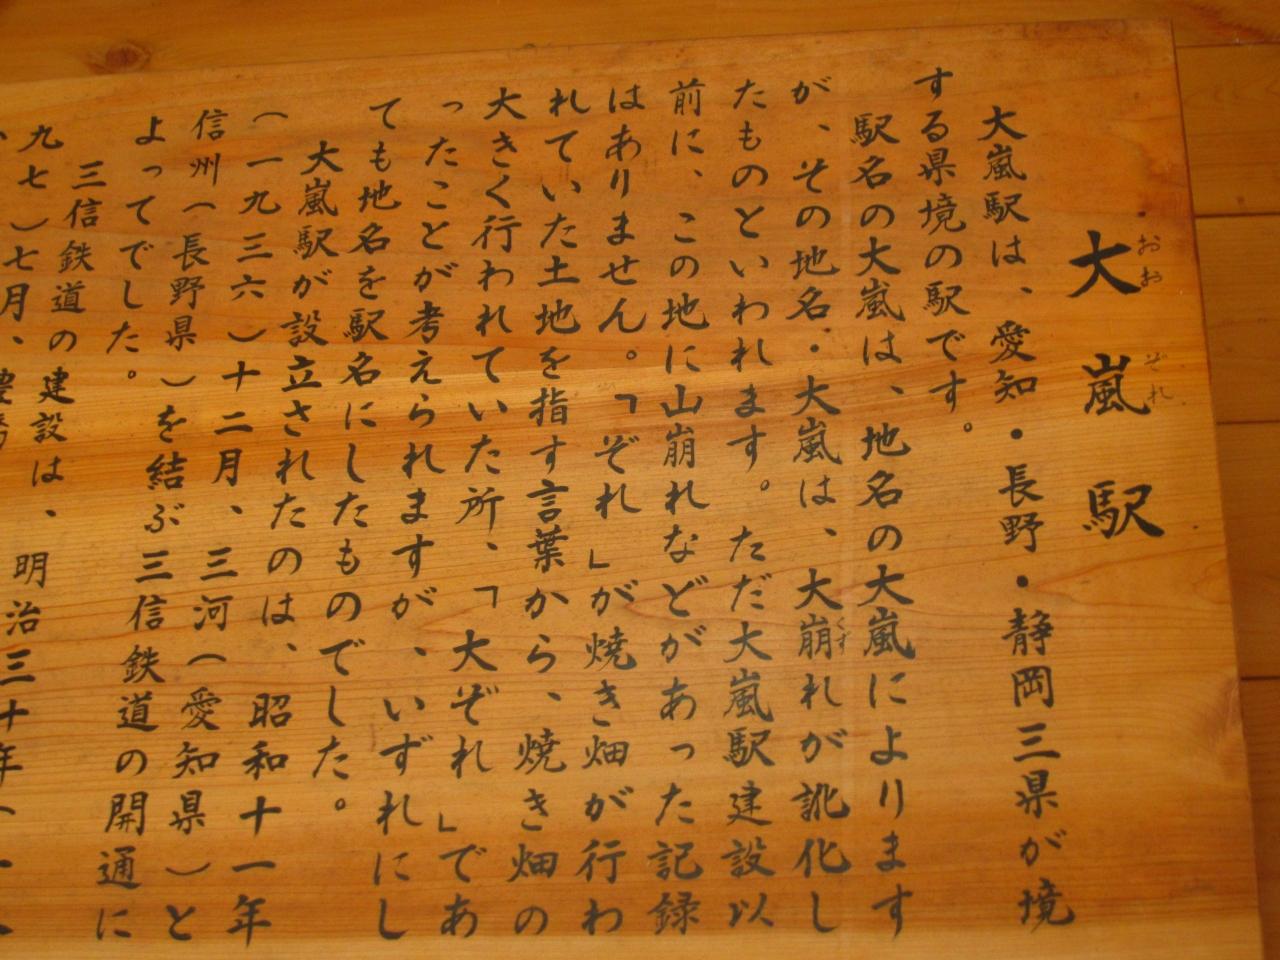 大嵐駅
おおぞれ
大嵐駅は、愛知・長野・静岡三県が境
する県境の駅です。
駅名の大嵐は、地名の大嵐によります
が、その地名・大嵐は、大崩れが訛化し
くず
たものといわれます。ただ大嵐駅建設以
前に、この地に山崩れなどがあった記録
はありません。「ぞれ」が焼き畑が行わ
れていた土地を指す言葉から、焼き畑の
大きく行われていた所、「大ぞれ」であ
ったことが考えられますが、いずれにし
ても地名を駅名にしたものでした。
大嵐駅が設立されたのは、昭和十一年
(一九三六)十二月、三河(愛知県)と
信州(長野県)を結ぶ三信鉄道の開通に
よってでした。
三信鉄道の建設は、明治三十年(一八
九七)七月、豊